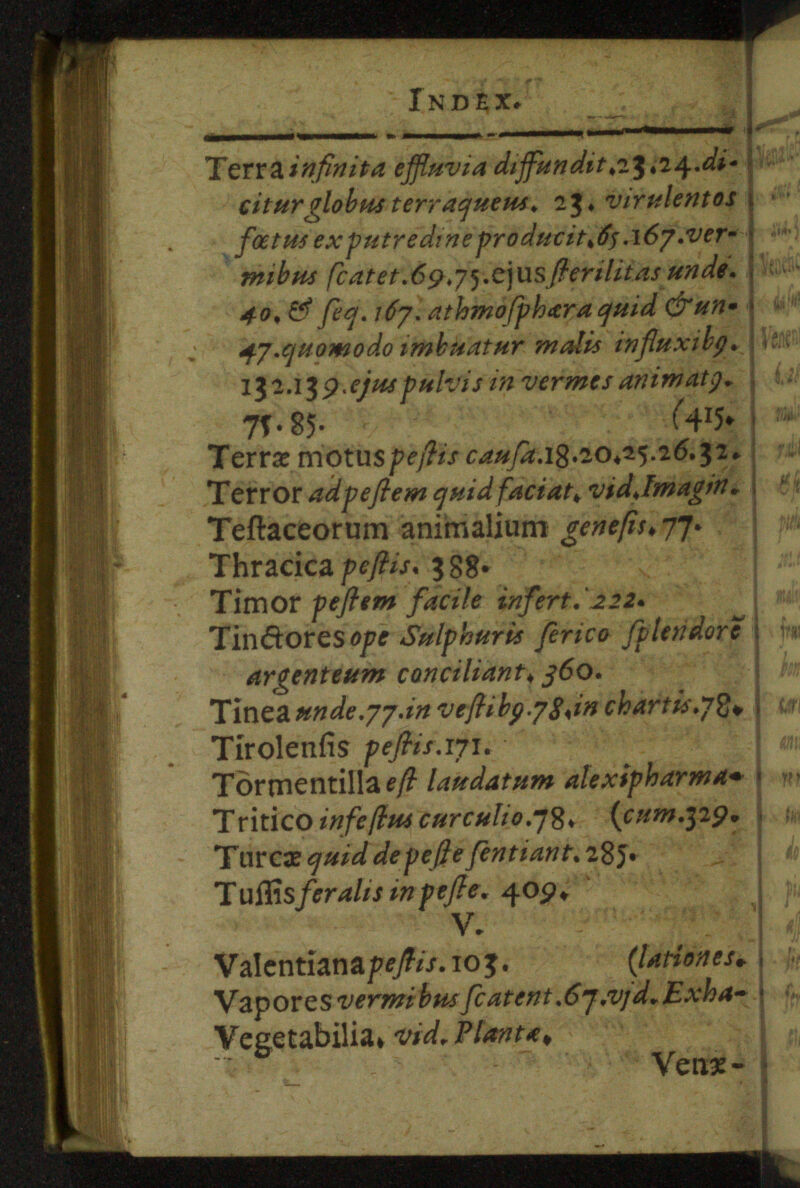 INDEX.
Terra infinita effluvia diffundit.23.24.di-
citur globus terraqueus. 23. virulentos
fœtus ex putredine producit.65.167.ver-
mibus ſcatet.69.75.ejus ſterilitas unde.
40. & ſeq. 167. athmoſphæra quid & un-
47.quomodo imbuatur malis influxibꝰ.
132.139.ejus pulvis in vermes animatꝰ.
75.85. (415.
Terræ motus peſtis cauſa.18.20.25.26.32.
Terror ad peſtem quid faciat. vid.Imagin.
Teſtaceorum animalium geneſis.77.
Thracica peſtis. 388.
Timor peſtem facile infert. 222.
Tinctores ope Sulphuris ſerico ſplendorē
argenteum conciliant. 360.
Tinea unde.77.in veſtibꝰ.78.in chartis.78.
Tirolenſis peſtis.171.
Tormentilla eſt laudatum alexipharma-
Tritico infeſtus curculio.78. (cum.329.
Turcæ quid de peſte ſentiant. 285.
Tuſſis feralis in peſte. 409.
V.
Valentiana peſtis. 103. (lationes.
Vapores vermibus ſcatent.67.vid.Exha-
Vegetabilia. vid. Plantæ.
Venæ-